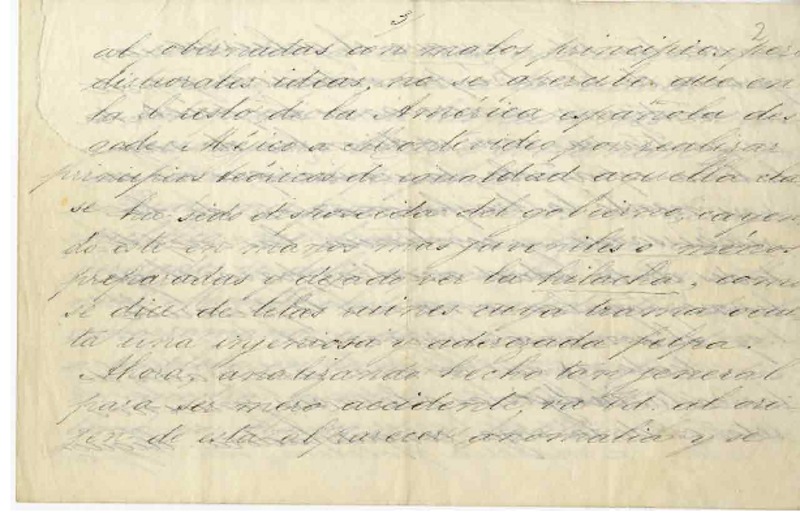 3
2
al obinadas con malos principios, per
disolrales ideas, no se apercibe que en
la resto de la América española des
de Méjico a Montevidio, por realizar
principios teóricos de igualdad aquella cla
se ha sido desposeida del gobierno, cayen
do este en manos mas juveniles o menos
preparadas i dejado ver la hilacha, como
se dice de telas ruines cuya trama ocul
ta una injeniosa i aderezada pelpa.
Ahora, analizando hecho tan jeneral
para ser mero accidente, va Ud. al ori-
gen de esta al parecer anomalia y se